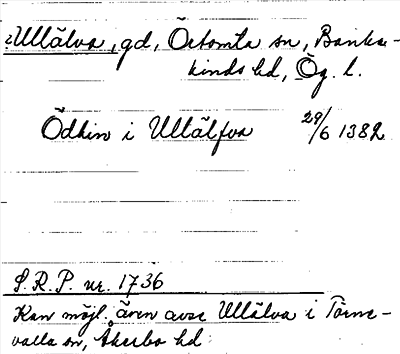 ?Ullälva, gd, Örtomta sn, Banke-
kinds hd, Ög. l.
Ödhin i Ullälfva 29/6 1382
S.R.P. nr. 1736
Kan möjl. även avse Ullälva i Törne-
valla sn, Åkerbo hd